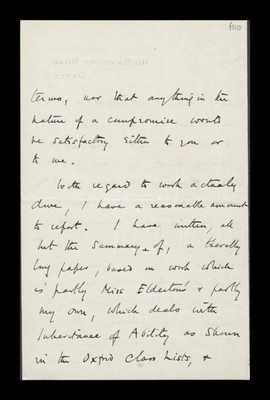 110
terms, nor that anything in the
nature of a compromise would
be satisfactory either to you or
to me.
With regard to work actually
done, I have a reasonable amount
to report. I have written, all
but the summary of, a
long paper, based on work which
is partly Miss Elderton's & partly
my own, which deals with
Inheritance of Ability as Shown
in the Oxford Class Lists, &